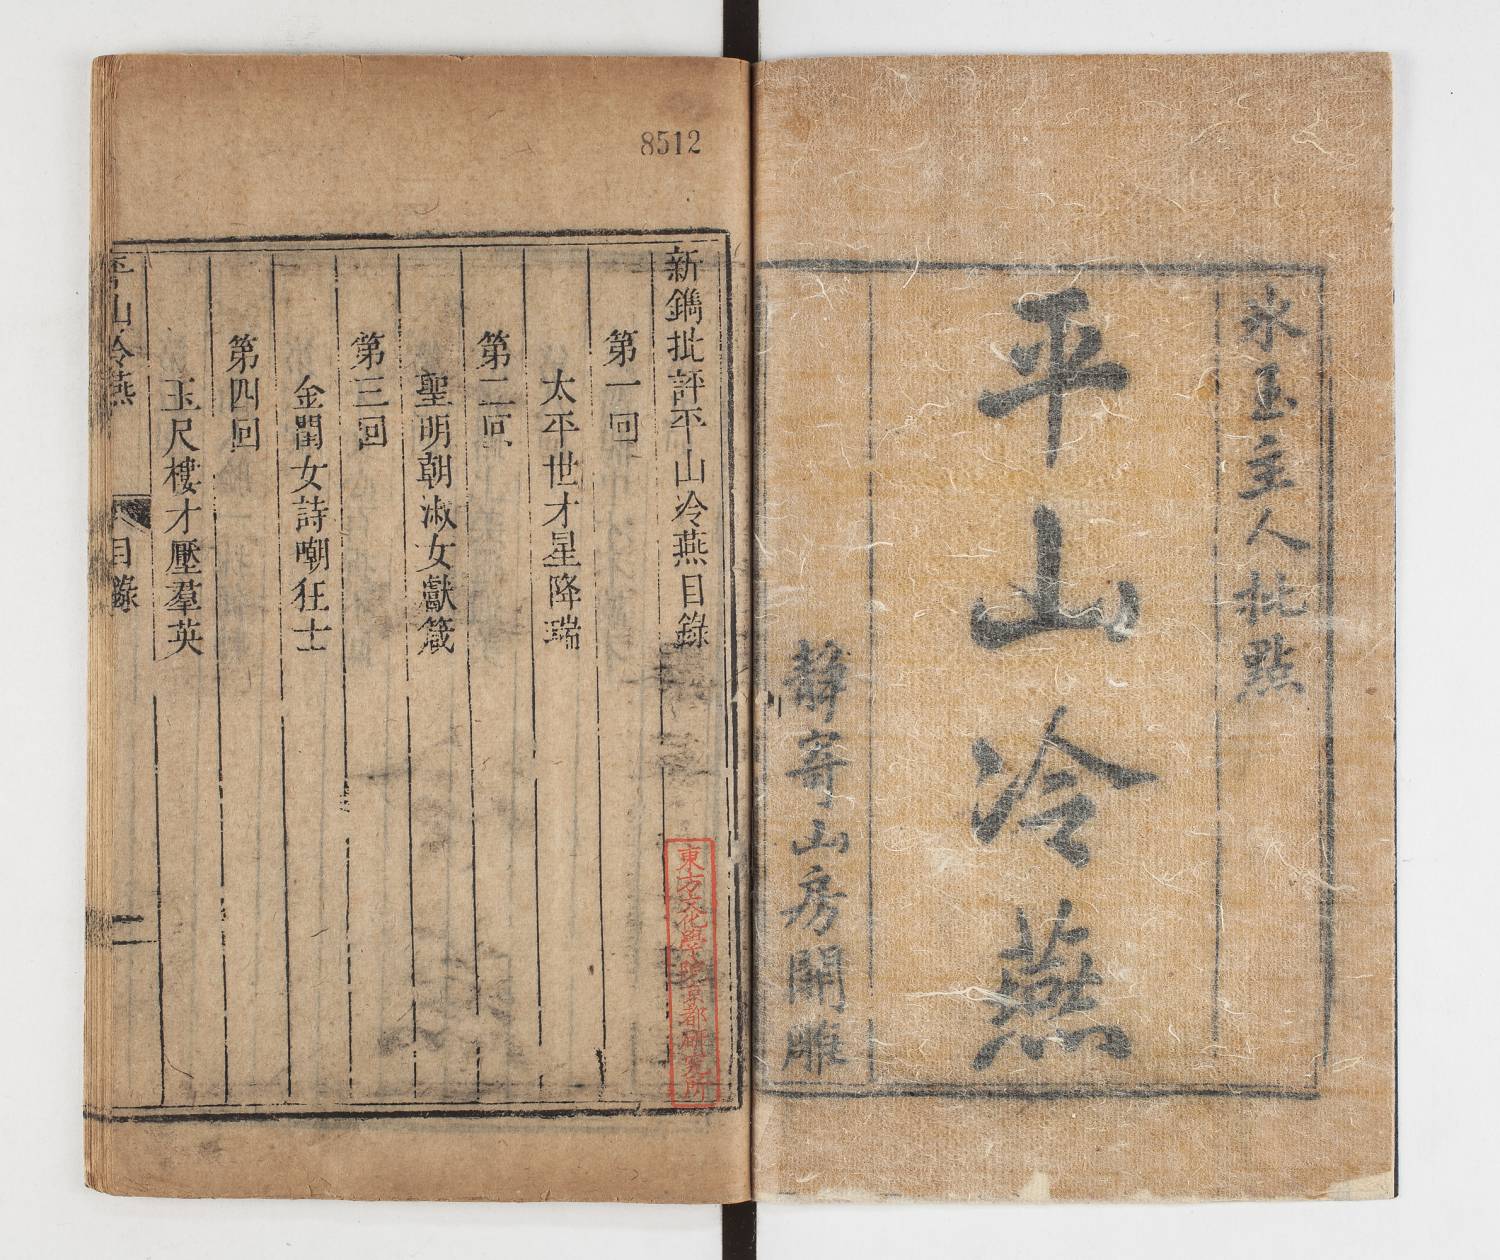 氷玉主人批點
平山冷燕
靜寄山房開雕
8512
新鐫批評平山冷燕目錄
第一回
太平世才星降瑞
第二回
聖明朝淑女獻箴
第三回
金閨女詩嘲狂士
第四回
玉尺樓才壓羣英
平山冷燕
目錄
一
東方文化學院京都研究所